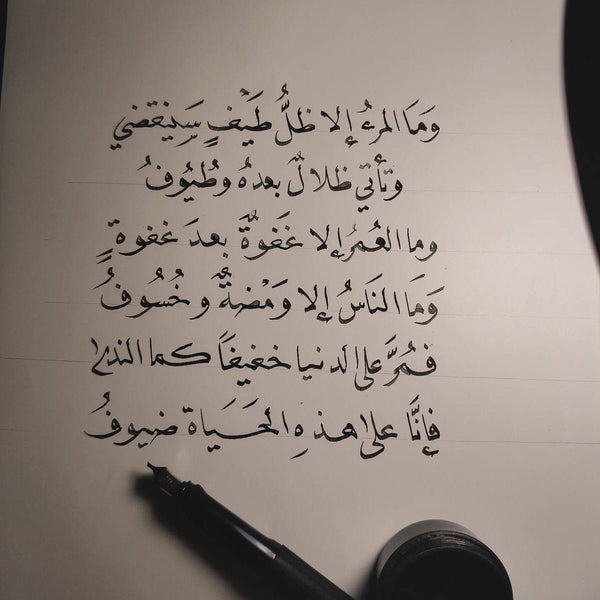 وَمَا المرءُ إلا ظلُّ طَيفٍ سَيَنقضي
وتأتي ظلالٌ بعدهُ وطُيُوفُ
وما العُمرُ إلا غَفوةٌ بعدَ غفوةٍ
وَمَا النَاسُ إلا وَمْضةٌ وخُسُوفُ
فَمُرَّ على الدنيا خفيفاً كما الندى
فإنَّا على هذهِ الحَيَاة ضيوفُ